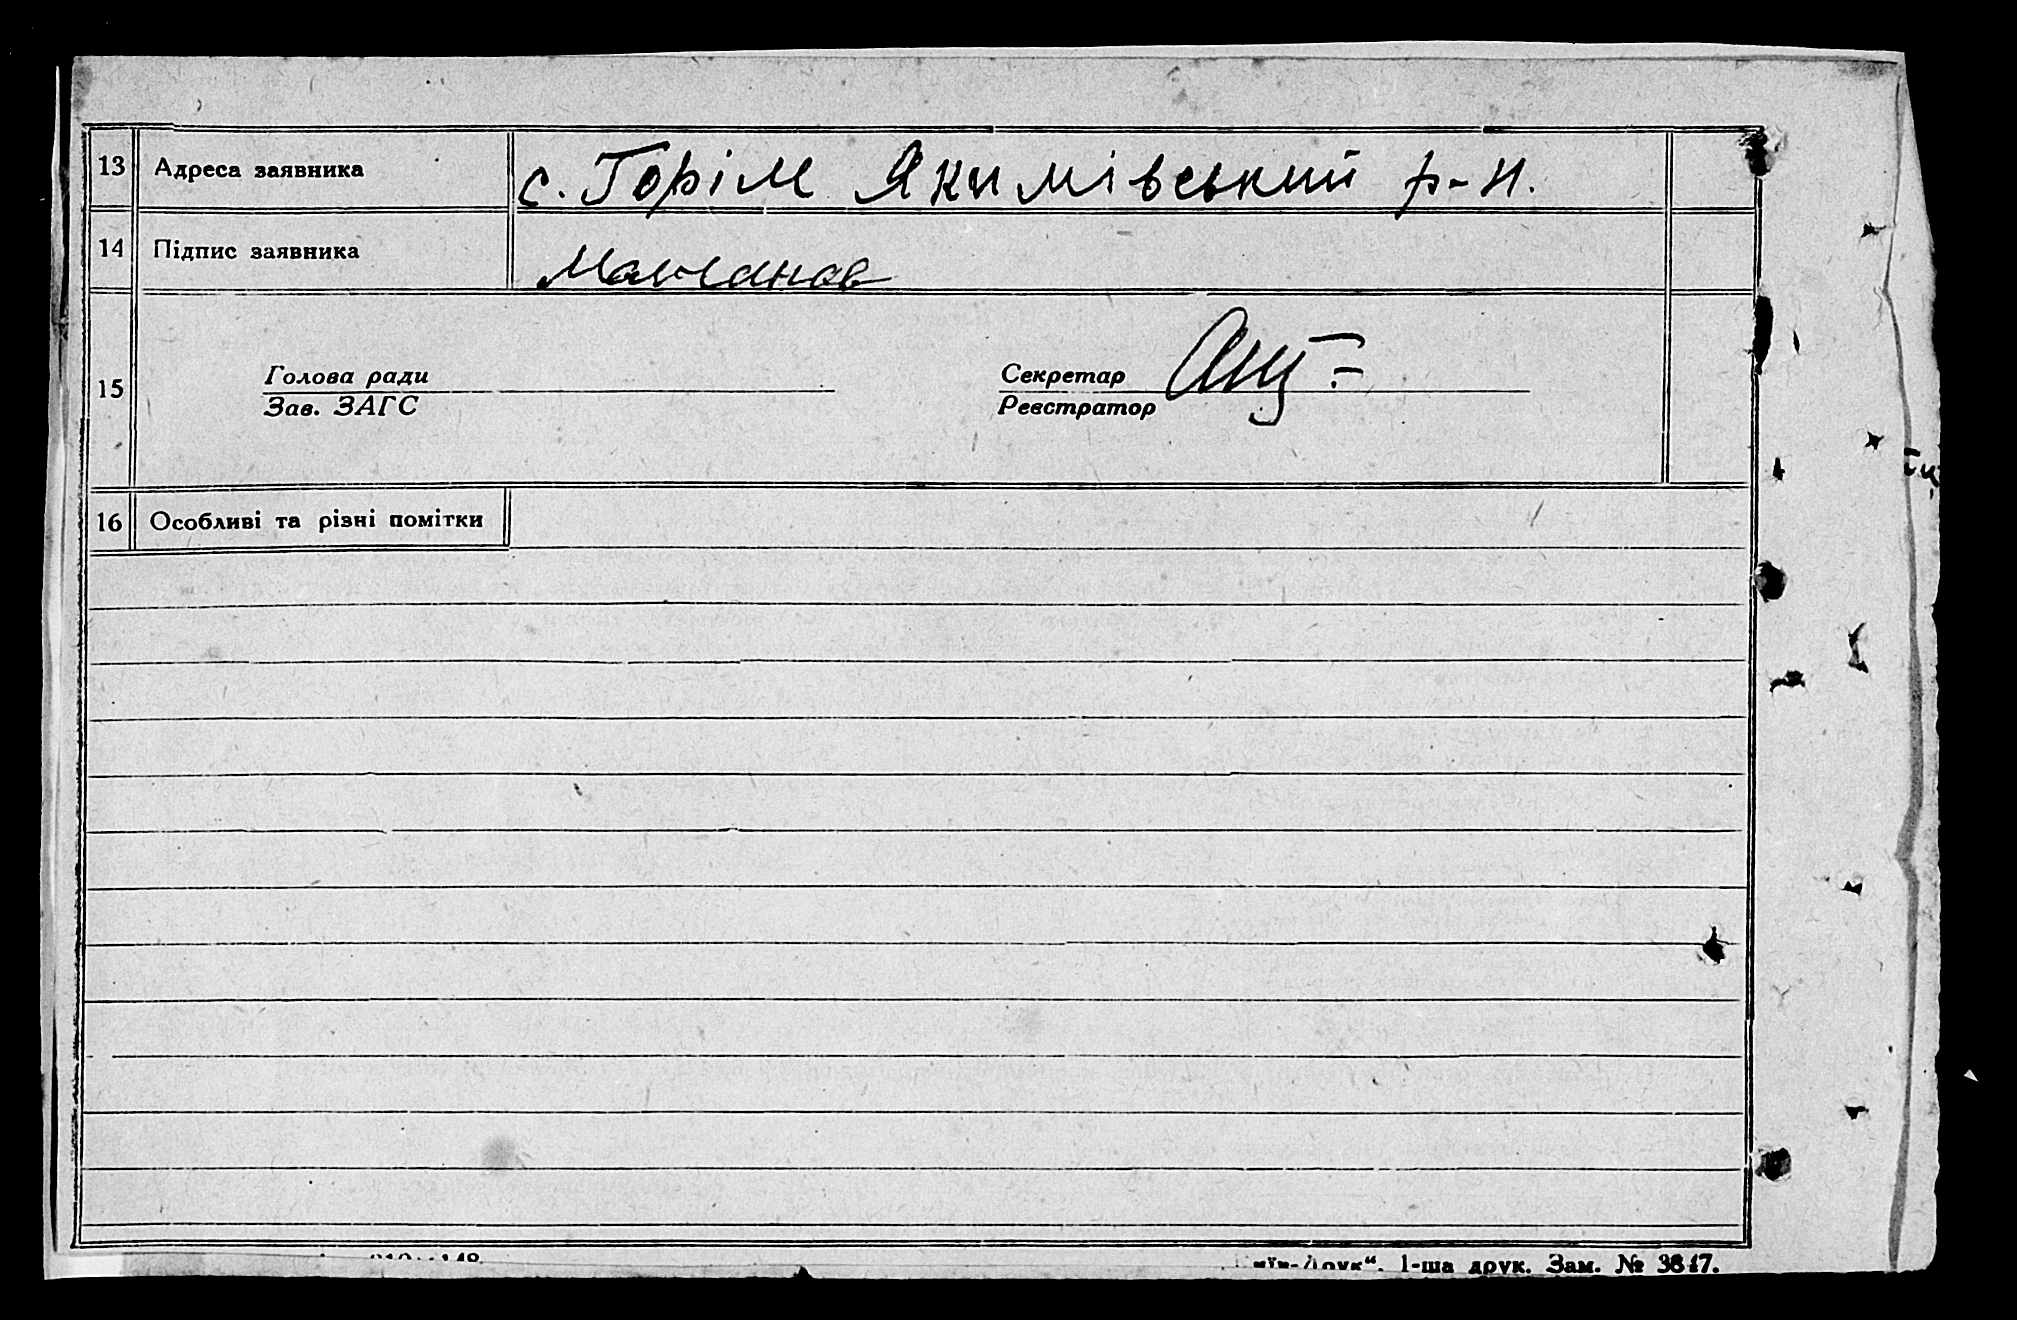 13 Адреса заявника с. Горіле Якимівський р-н.
14 Підпис заявника Молчанов
Голова ради Секретар
15
Зав. ЗАГС Реєстратор
16 Особливі та різні помітки
друк“. 1-ша друк. Зам. № 3847.